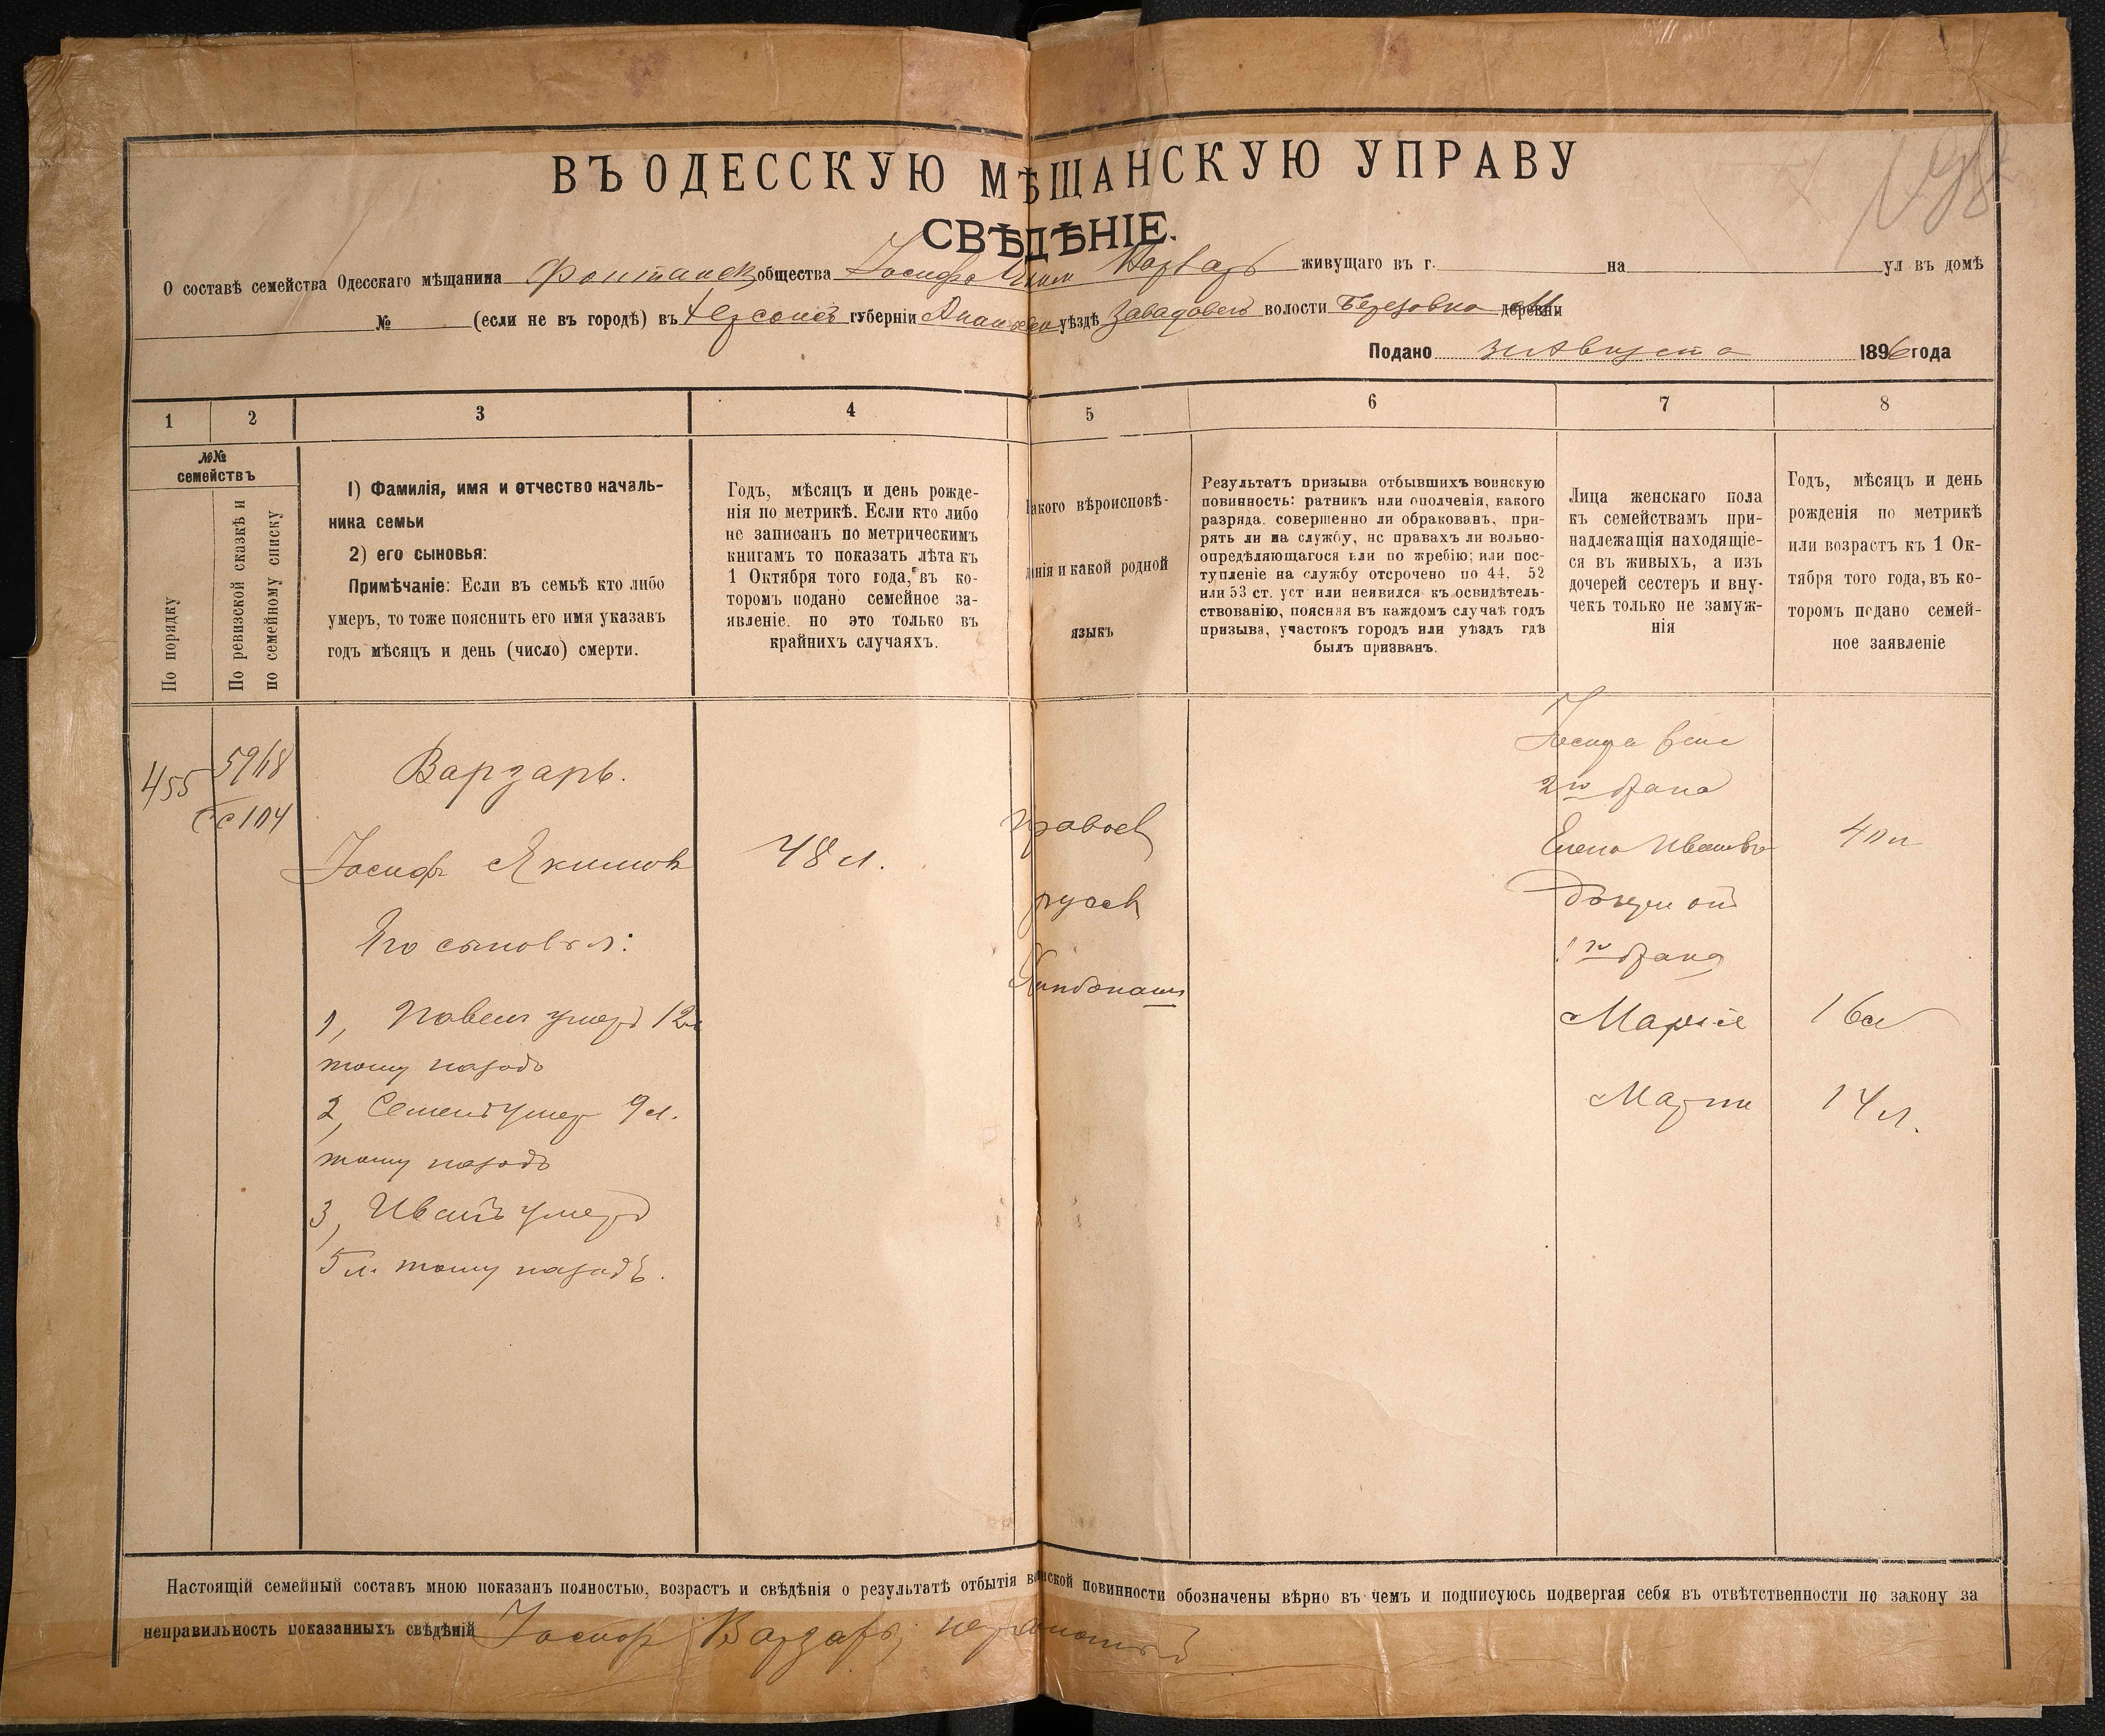 ВЪ ОДЕССКУЮ МѢЩАНСКУЮ УПРАВУ
СВѢДѢНІЕ.
О составѣ семейства Одесскаго мѣщанина Фонтанск общества Іосифа Варзарь живущаго въ г. на ул въ домѣ
№ (если не въ городѣ) въ Херсонск губерніи Ананьев уѣздѣ Завадовск волости Березовка деревни
Подано Августа 1896 года
1 2 3 4 5 6 7 8
№№
семействъ
По порядку
По ревизской сказкѣ и
по семейному списку
1) Фамилія, имя и отчество началь-
ника семьи
2) его сыновья:
Примѣчаніе: Если въ семьѣ кто либо
умеръ, то тоже пояснить его имя указавъ
годъ мѣсяцъ и день (число) смерти.
Годъ, мѣсяцъ и день рожде-
нія по метрикѣ. Если кто либо
не записанъ по метрическимъ
книгамъ то показать лѣта къ
1 Октября того года, въ ко-
торомъ подано семейное за-
явленіе. но это только въ
крайнихъ случаяхъ.
акого вѣроисповѣ-
данія и какой родной
языкъ
Результатъ призыва отбывшихъ воинскую
повинность: ратникъ или ополченія, какого
разряда. совершенно ли обракованъ, при-
рять ли на службу, нс правахъ ли вольно-
опредѣляющагося или по жребію; или пос-
тупленіе на службу отсрочено по 44, 52
или 53 ст. уст или неявился къ освидѣтель-
ствованію, поясняя въ каждомъ случаѣ годъ
призыва, участокъ городъ или уѣздъ гдѣ
былъ призванъ.
Лица женскаго пола
къ семействамъ при-
надлежащія находящіе-
ся въ живыхъ, а изъ
дочерей сестеръ и вну-
чекъ только не замуж-
нія
Годъ, мѣсяцъ и день
рожденія по метрикѣ
или возрастъ къ 1 Ок-
тября того года, въ ко-
торомъ подано семей-
ное заявленіе
455
59/68
сс 104
Варзарь.
Іосифъ Якимов
48 л.
Его сыновья:
1, Павелъ умеръ 12 л
тому назадъ
2, Семенъ умер 9 л.
тому назадъ
3, Иванъ умеръ
5 л. тому назадъ.
правосл
русск
Іосифа жена
2го брака
Елена Иванова 40 л
дочери от
1го брака
Марія 16 л
Марта 14 л.
Настоящій семейный составъ мною показанъ полностью, возрастъ и свѣдѣнія о результатѣ отбытія воинской повинности обозначены вѣрно въ чемъ и подписуюсь подвергая себя въ отвѣтственности по закону за
неправильность показанныхъ свѣдѣній Іосифъ Варзарь, неграмотный